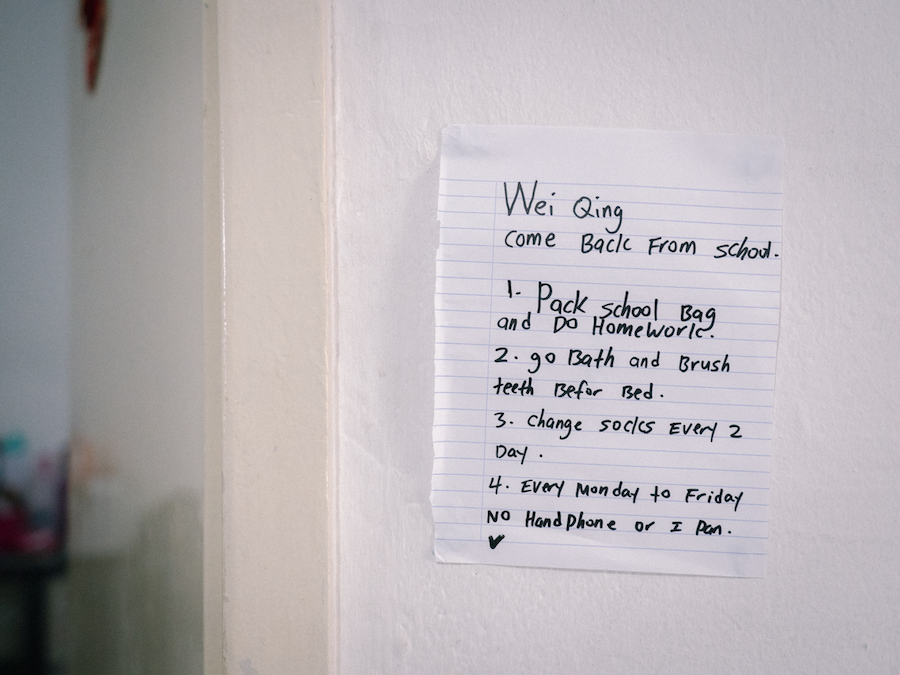 Wei Qing
Come Back From school.
1. Pack school Bag
and Do Homework.
2. go Bath and Brush
teeth Befor Bed.
3. Change socks Every 2
Day.
4. Every Monday to Friday
NO Handphone or I Pan.